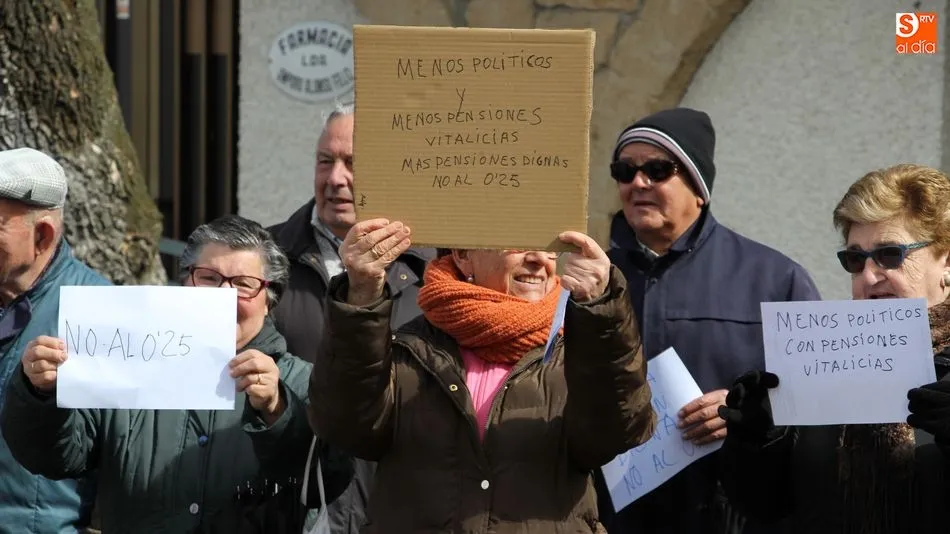 FARMACIA
LDA
S RTV
al día
MENOS POLITICOS
Y
MENOS PENSIONES
VITALICIAS
MAS PENSIONES DIGNAS
NO AL 0'25
NO-AL 0'25
NO AL
MENOS POLÍTICOS
CON PENSIONES
VITALICIAS